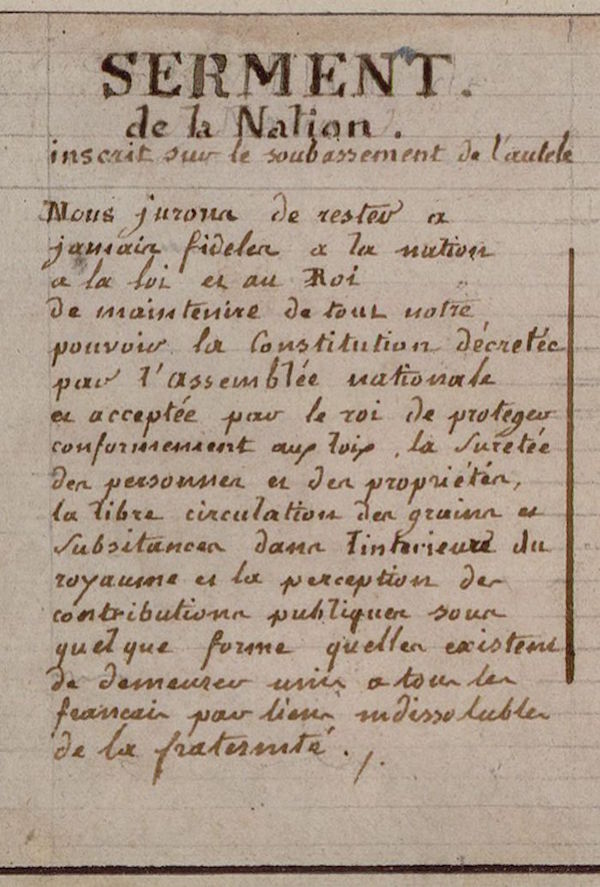 SERMENT.
de la Nation.
inscrit sur le soubassement de l'autele
Nous jurons de rester a
jamais fideles a la nation
a la loi et au Roi
de maintenire de tout notre
pouvoir la Constitution décretée
par l'assemblée nationale
et acceptée par le roi de proteger
conformement aux loix, la suretée
des personnes et des propriétés,
la libre circulation des grains et
subsitances dans l'interieure du
royaume et la perception des
contributions publiques sous
quelque forme quelles existent
de demeurer unis a tous les
francais par liens indissolubles
de la fraternité.